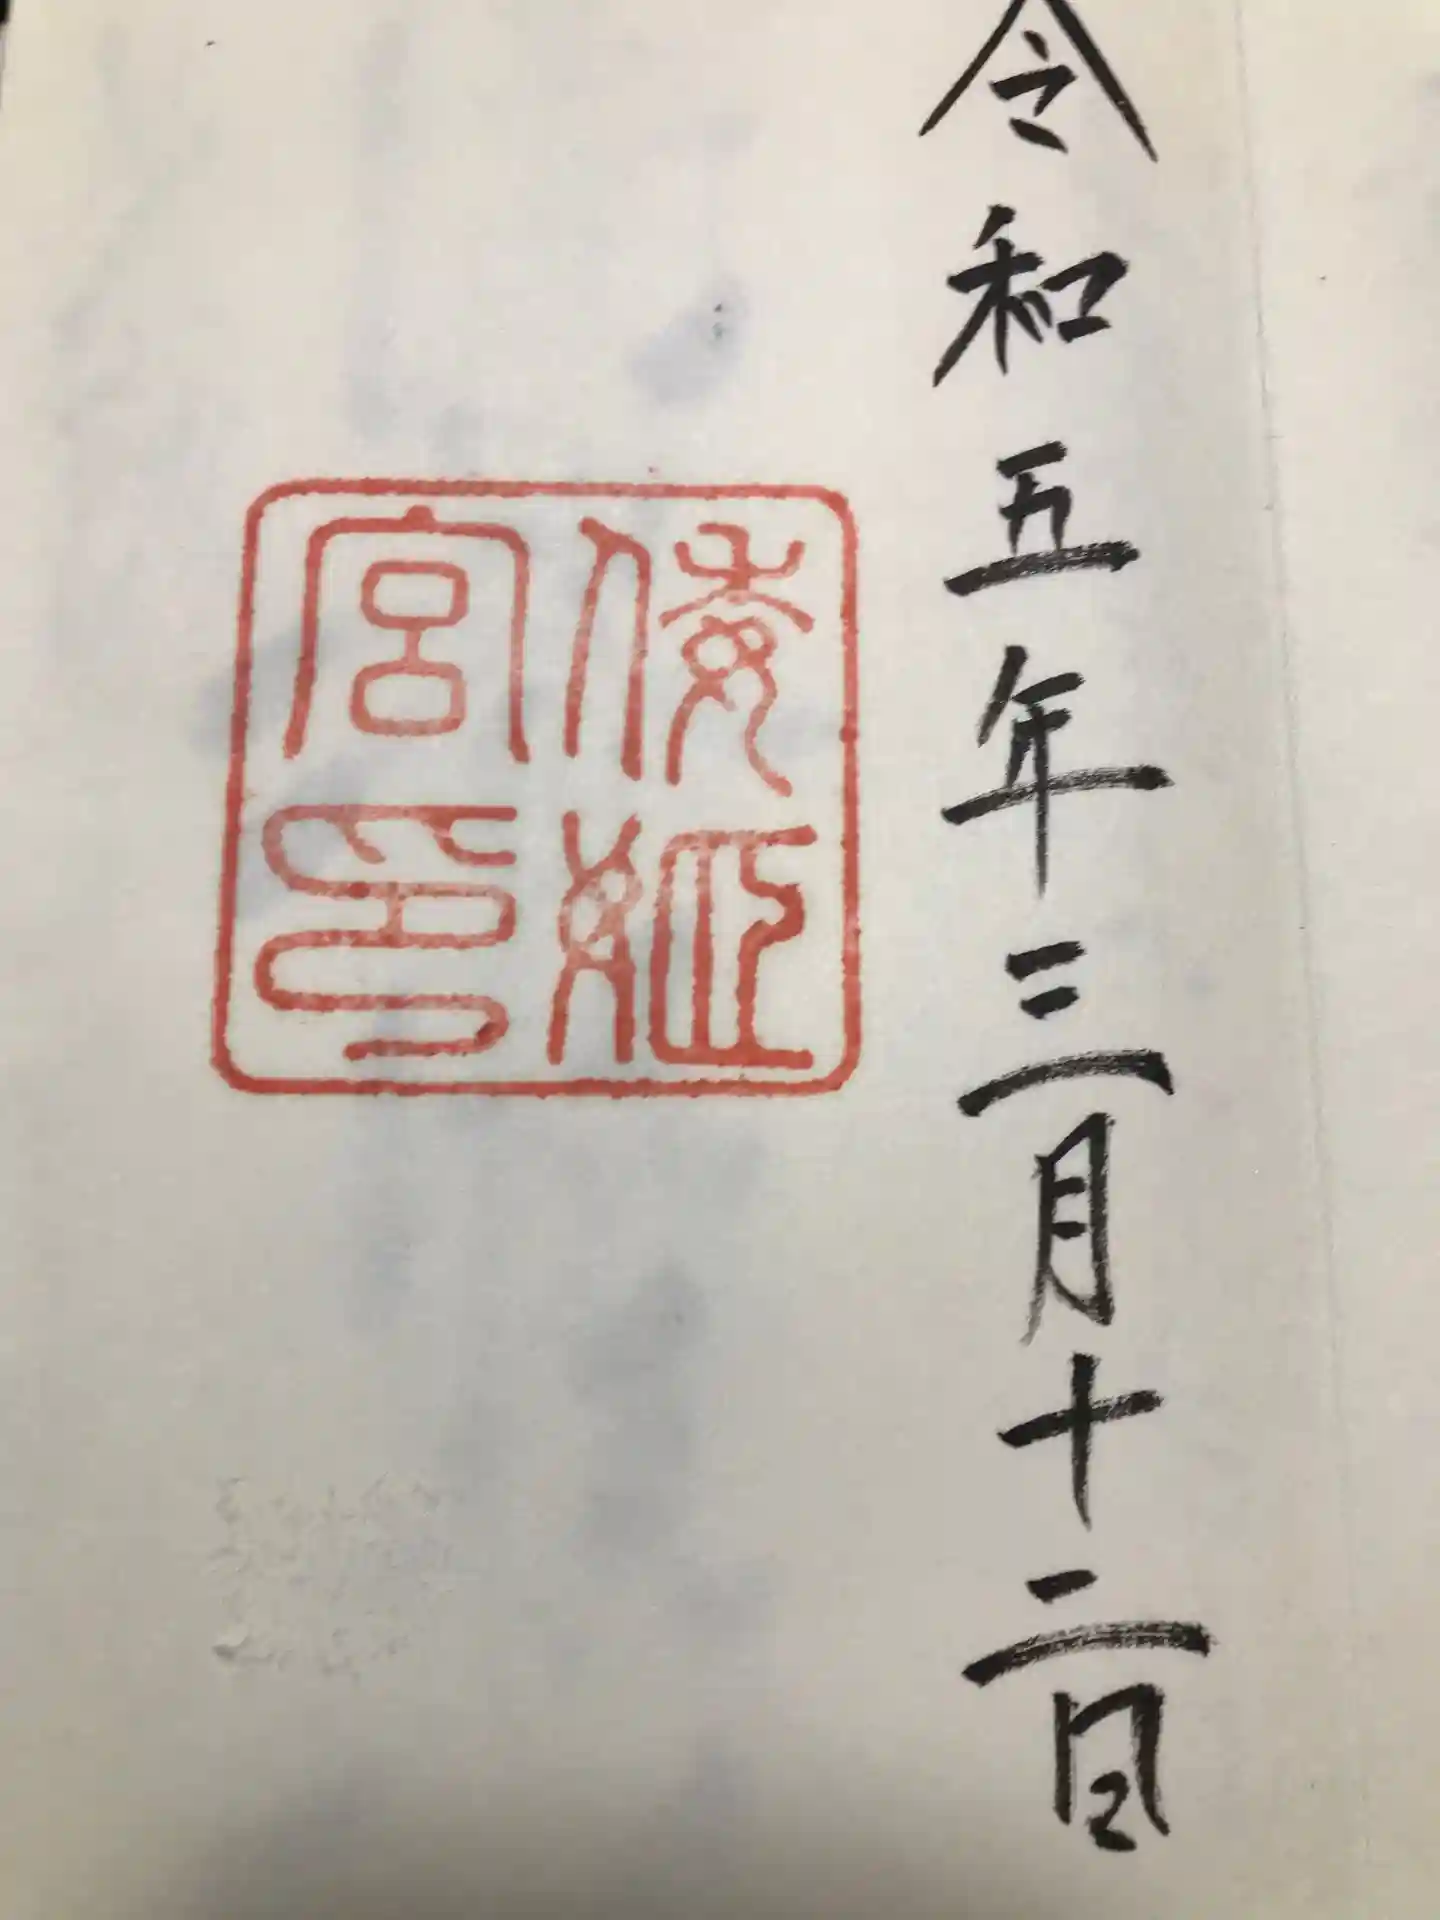 令和五年三月十二日
倭姫
宮印